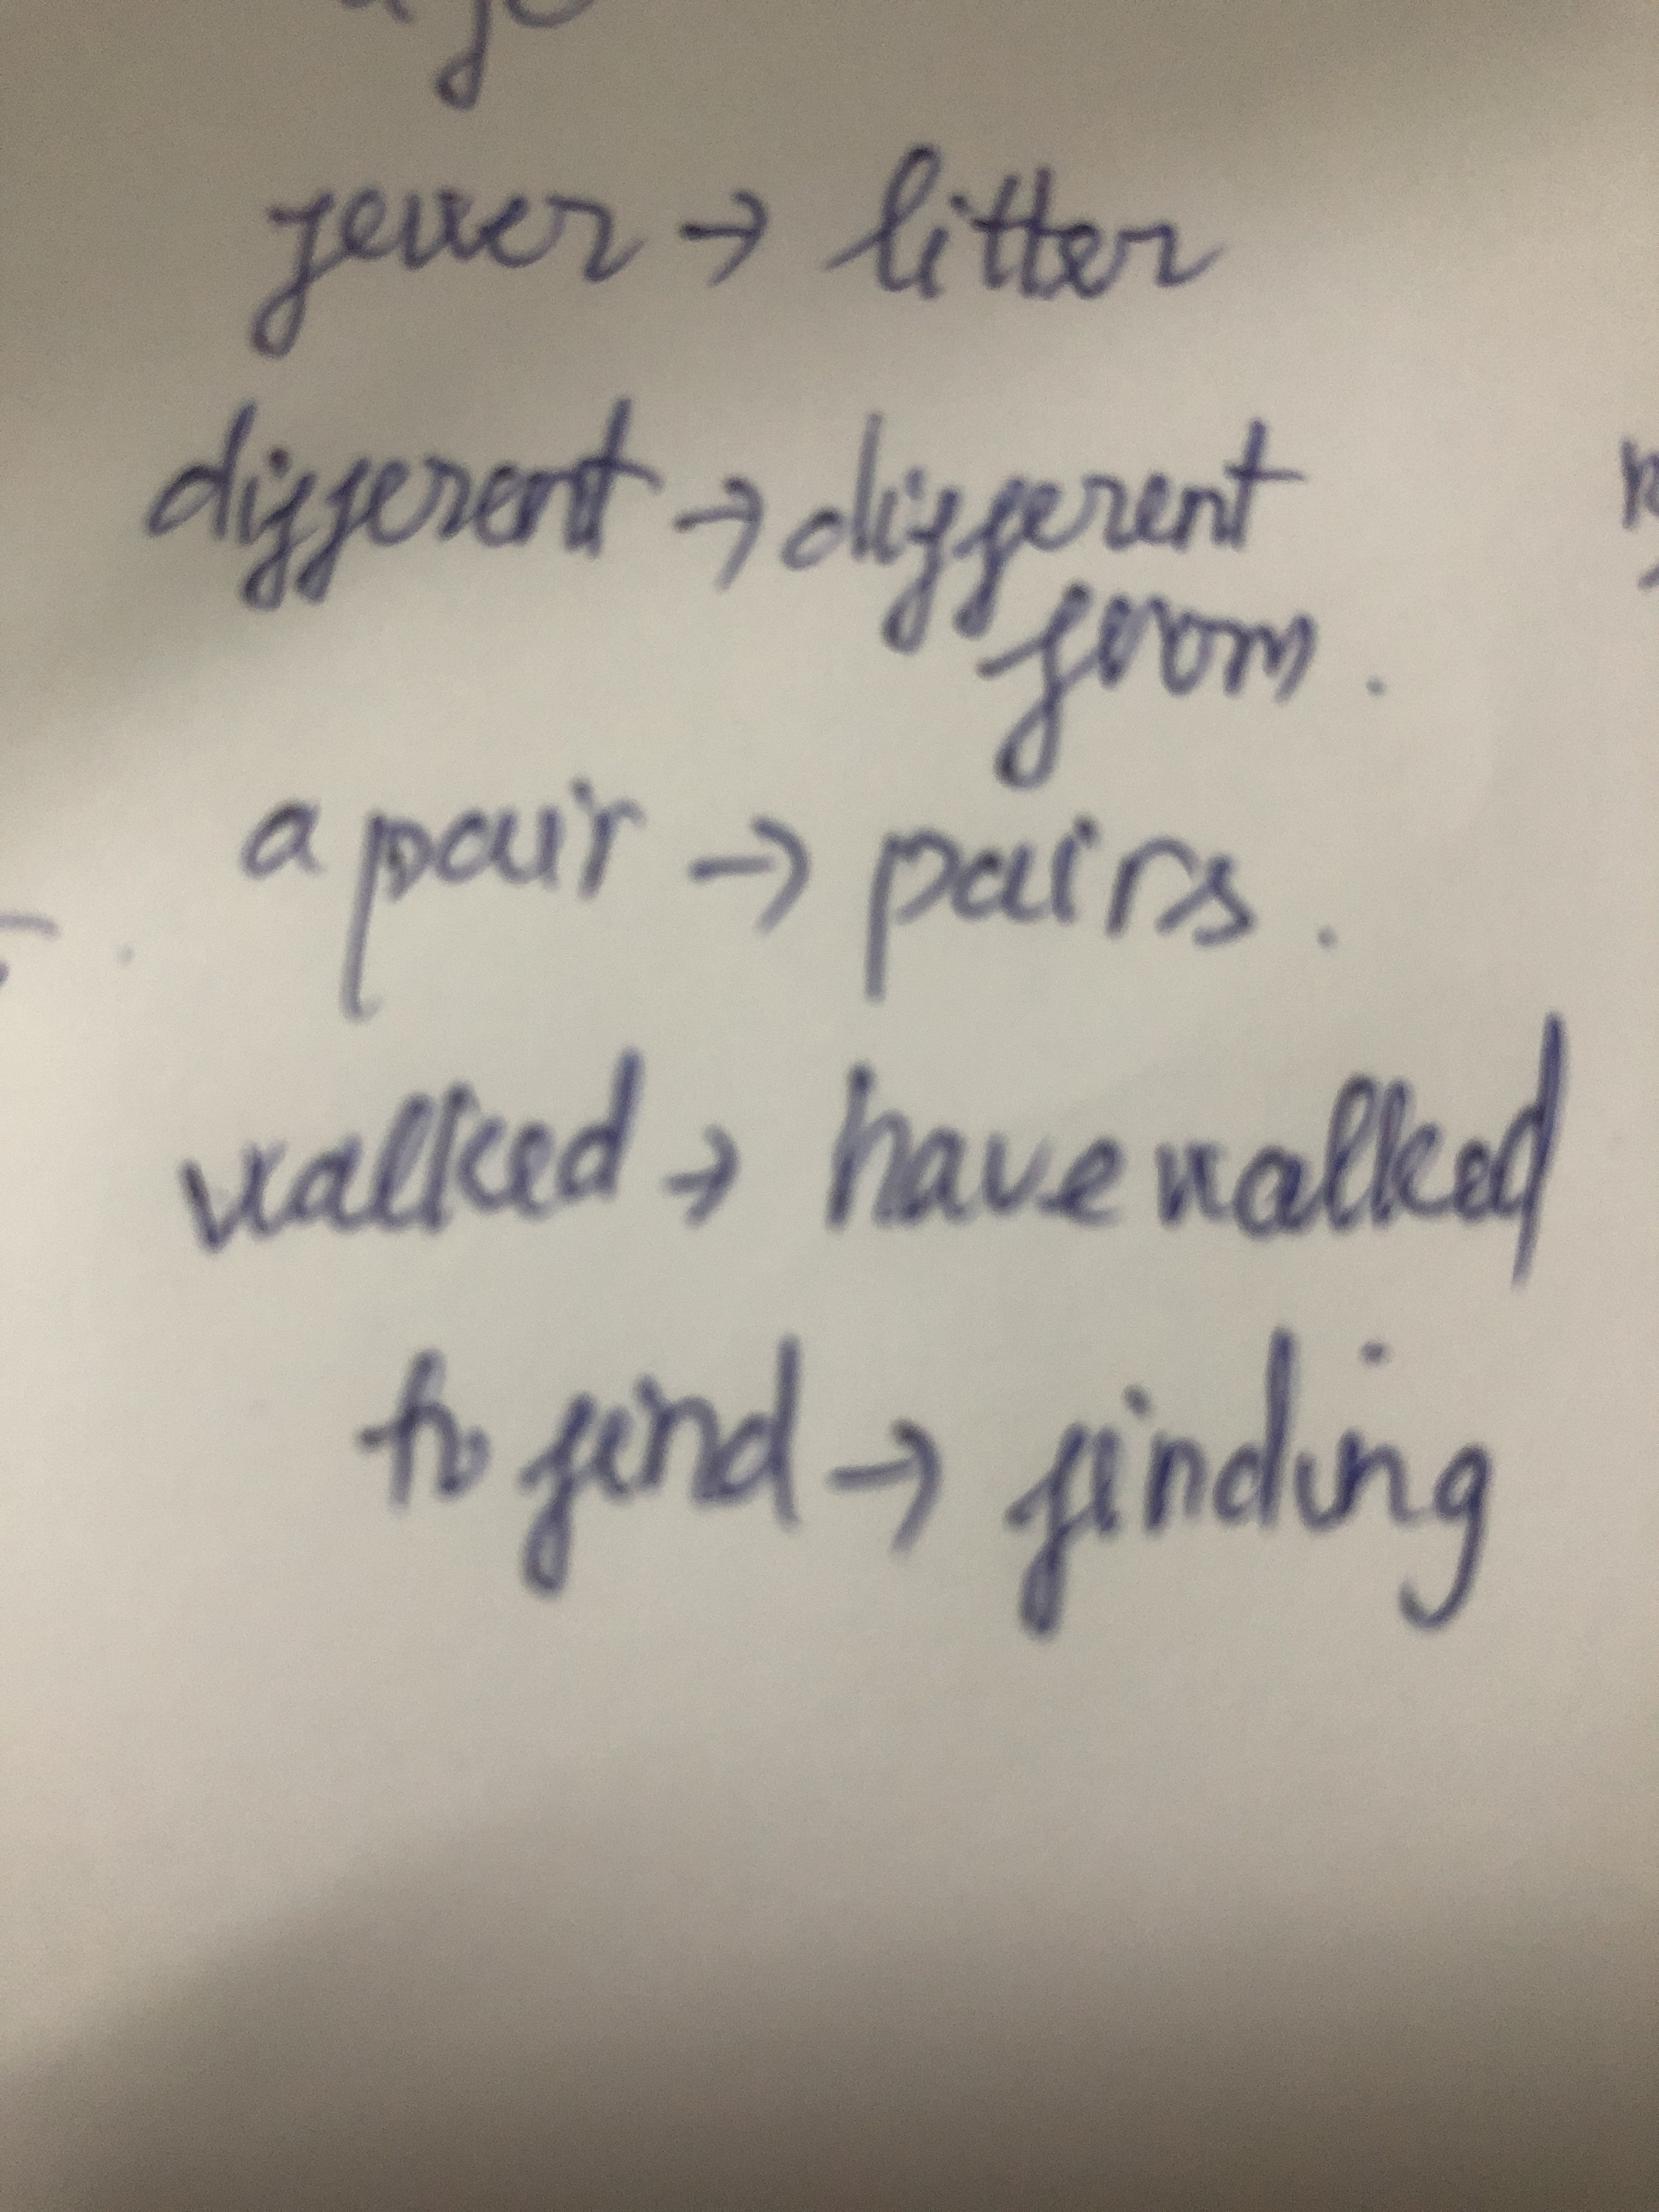 fewer → litter
different → different
from.
a pair → pairs.
walked → have walked
to find → finding